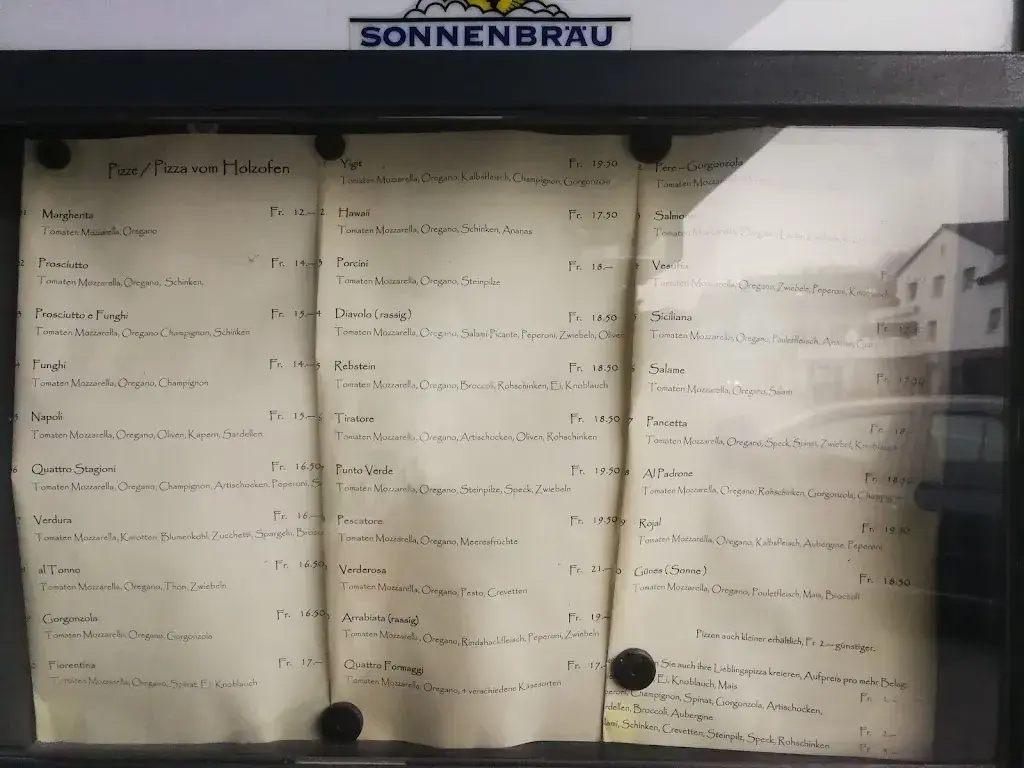 SONNENBRÄU
Pizze / Pizza vom Holzofen
Margherita Fr. 12.—
Tomaten Mozzarella, Oregano
Prosciutto Fr. 14.—
Tomaten Mozzarella, Oregano, Schinken,
Prosciutto e Funghi Fr. 15.—
Tomaten Mozzarella, Oregano Champignon, Schinken
Funghi Fr. 14.—
Tomaten Mozzarella, Oregano, Champignon
Napoli Fr. 15.—
Tomaten Mozzarella, Oregano, Oliven, Kapern, Sardellen
Quattro Stagioni Fr. 16.50
Tomaten Mozzarella, Oregano, Champignon, Artischocken, Peperoni,
Verdura Fr. 16.—
Tomaten Mozzarella, Karotten Blumenkohl, Zucchetti, Spargeln,
al Tonno Fr. 16.50
Tomaten Mozzarella, Oregano, Thon, Zwiebeln
Gorgonzola Fr. 16.50
Tomaten Mozzarella, Oregano, Gorgonzola
Fiorentina Fr. 17.—
Tomaten Mozzarella, Oregano, Spinat, Ei, Knoblauch
Yigit Fr. 19.50
Tomaten Mozzarella, Oregano, Kalbsfleisch, Champignon, Gorgonzola
Hawaii Fr. 17.50
Tomaten Mozzarella, Oregano, Schinken, Ananas
Porcini Fr. 18.—
Tomaten Mozzarella, Oregano, Steinpilze
Diavolo (rassig) Fr. 18.50
Tomaten Mozzarella, Oregano, Salami Picante, Peperoni, Zwiebeln, Oliven
Rebstein Fr. 18.50
Tomaten Mozzarella, Oregano, Broccoli, Rohschinken, Ei, Knoblauch
Tiratore Fr. 18.50
Tomaten Mozzarella, Oregano, Artischocken, Oliven, Rohschinken
Punto Verde Fr. 19.50
Tomaten Mozzarella, Oregano, Steinpilze, Speck, Zwiebeln
Pescatore Fr. 19.50
Tomaten Mozzarella, Oregano, Meeresfrüchte
Verderosa Fr. 21.—
Tomaten Mozzarella, Oregano, Pesto, Crevetten
Arrabiata (rassig) Fr. 19.—
Tomaten Mozzarella, Oregano, Rindshackfleisch, Peperoni, Zwiebeln
Quattro Formaggi Fr. 17.
Tomaten Mozzarella, Oregano, 4 verschiedene Käsesorten
Pere – Gorgonzola
Tomaten
Salmo
Tomaten Mozzarella, Oregano,
Tomaten Mozzarella, Oregano, Zwiebeln, Peperoni, Knoblauch
Siciliana Fr.
Tomaten Mozzarella, Oregano, Pouletfleisch, Ananas,
Salame Fr. 17.50
Tomaten Mozzarella, Oregano, Salami
Pancetta Fr. 18.—
Tomaten Mozzarella, Oregano, Speck, Spinat, Zwiebel, Knoblauch
Al Padrone Fr. 18.50
Tomaten Mozzarella, Oregano, Rohschinken, Gorgonzola,
Rojal Fr. 19.50
Tomaten Mozzarella, Oregano, Kalbsfleisch, Aubergine, Peperoni
Günes (Sonne) Fr. 18.50
Tomaten Mozzarella, Oregano, Pouletfleisch, Mais, Broccoli
Pizzen auch kleiner erhältlich, Fr. 2.— günstiger.
Sie auch ihre Lieblingspizza kreieren, Aufpreis pro mehr Belag:
Ei, Knoblauch, Mais Fr.
Champignon, Spinat, Gorgonzola, Artischocken,
Broccoli, Aubergine Fr. 2.—
Schinken, Crevetten, Steinpilz, Speck, Rohschinken Fr. 3.—